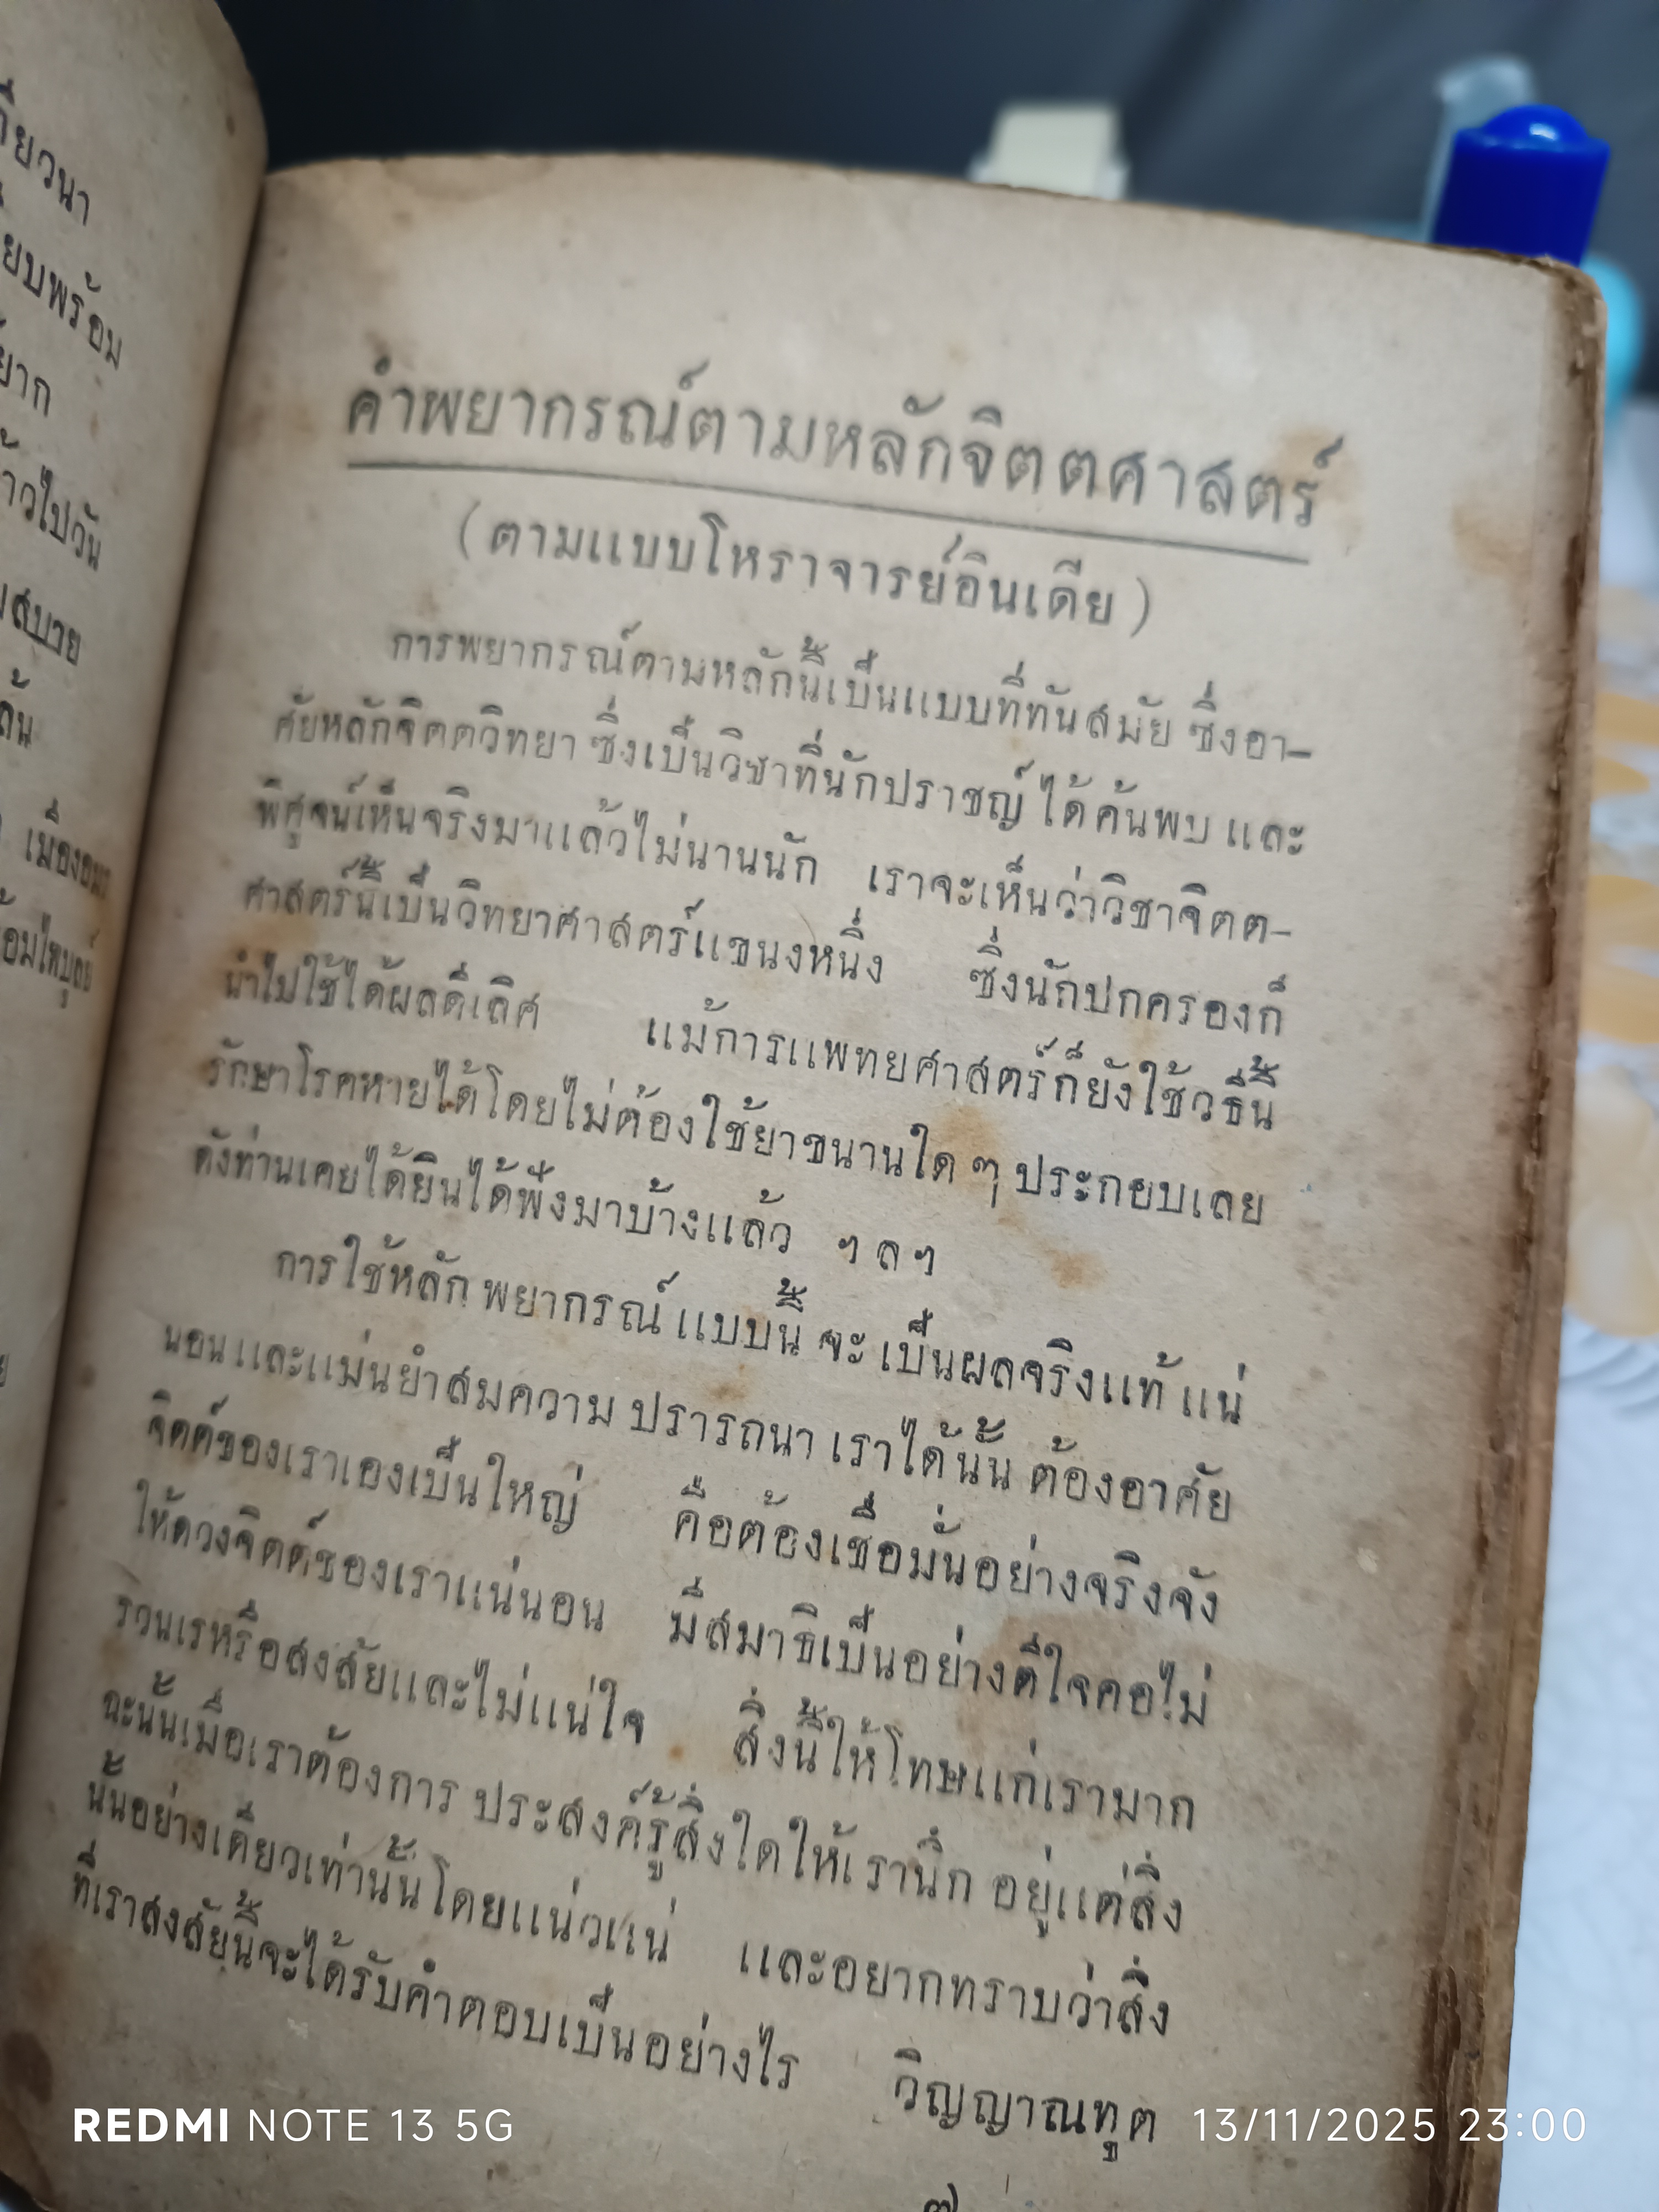 กียวนา
ยบพร้อม
ยาก
าวไปวัน
สบาย
เมืองอมร
คำพยากรณ์ตามหลักจิตตศาสตร์
(ตามแบบโหราจารย์อินเดีย)
การพยากรณ์ตามหลักนี้เป็นแบบที่ทันสมัย ซึ่งอา-
ศัยหลักจิตตวิทยา ซึ่งเป็นวิชาที่นักปราชญ์ ได้ค้นพบ และ
พิศูจน์เห็นจริงมาแล้วไม่นานนัก เราจะเห็นว่าวิชาจิตต-
ศาสตร์นี้เป็นวิทยาศาสตร์แขนงหนึ่ง ซึ่งนักปกครองก็
นำไปใช้ได้ผลดีเลิศ แม้การแพทยศาสตร์ก็ยังใช้วธีนี้
รักษาโรคหายได้โดยไม่ต้องใช้ยาขนานใด ๆ ประกอบเลย
ดังท่านเคยได้ยินได้ฟังมาบ้างแล้ว ฯ ล ฯ
การใช้หลัก พยากรณ์ แบบนี้ จะ เป็นผลจริงแท้ แน่
นอน และแม่นยำสมความ ปรารถนา เราได้นั้น ต้องอาศัย
จิตต์ของเราเองเป็นใหญ่ คือต้องเชื่อมั่นอย่างจริงจัง
ให้ดวงจิตต์ของเราแน่นอน มีสมาธิเป็นอย่างดีใจคอไม่
รวนเรหรือสงสัยและไม่แน่ใจ สิ่งนี้ให้โทษแก่เรามาก
ฉะนั้นเมื่อเราต้องการ ประสงค์รู้สิ่งใดให้เรานึก อยู่แต่สิ่ง
นั้นอย่างเดียวเท่านั้นโดยแน่วแน่ และอยากทราบว่าสิ่ง
ที่เราสงสัยนี้จะได้รับคำตอบเป็นอย่างไร วิญญาณทูต
REDMI NOTE 13 5G
13/11/2025 23:00